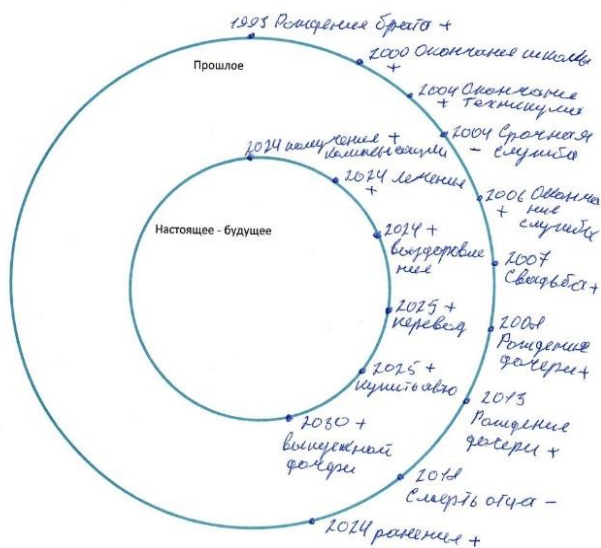 1993 Рождение брата +
Прошлое
2000 Окончание школы
+
2004 Окончание
+ техникума
2004 Срочная
- служба
2006 Оконча
+ ние
службы
2007
Свадьба +
2008
Рождение
дочери +
2013
Рождение
дочери +
2018
Смерть отца -
2024 ранение +
2024 получения +
компенсации
2024 лечения
+
Настоящее - будущее
2024 +
выздоровле
ние
2025 +
перевод
2025 +
купить авто
2030 +
выпускной
дочери